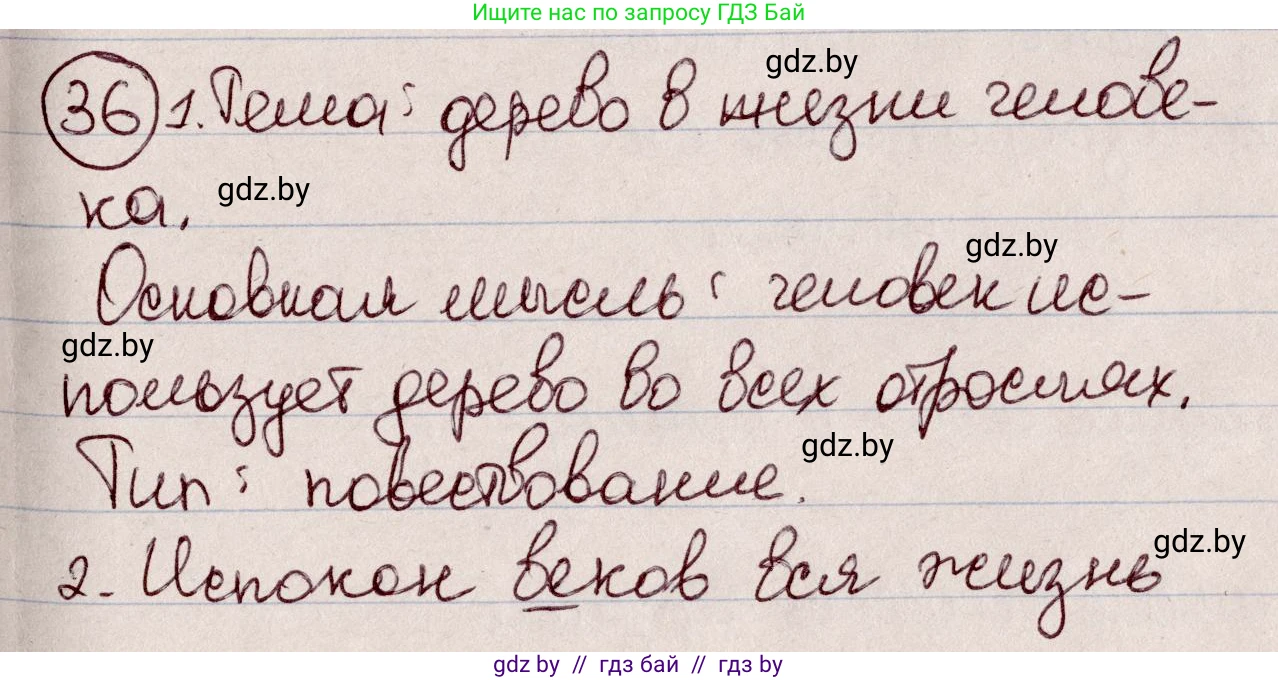 Ищите нас по запросу ГДЗ Бай
gdz.by
36 1. Тема: дерево в жизни челове-
gdz.by
ка.
gdz.by
Основная мысль: человек ис-
gdz.by
пользует дерево во всех отраслях.
gdz.by
Тип: повествование.
gdz.by
2. Испокон веков вся жизнь
gdz.by // гдз бай // гдз by